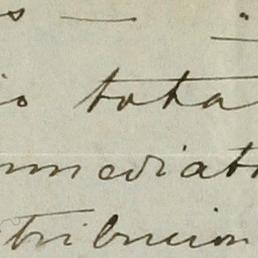 s — "
io tota
nmediat
tribucion